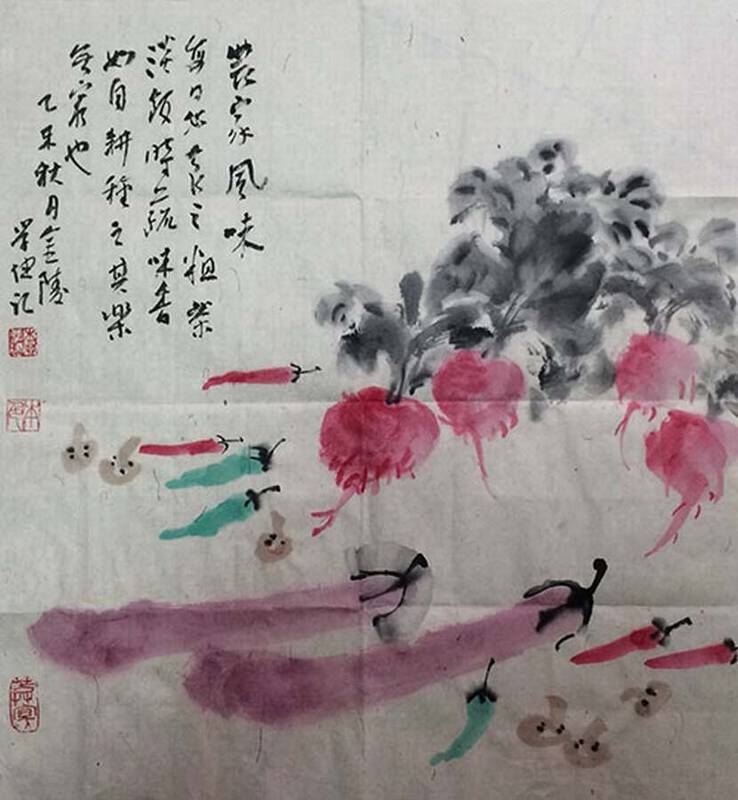 農家風味
每日必食之粗茶
淡飯時蔬味香
如自耕種之其樂
無窮也
乙未秋月金陵
记